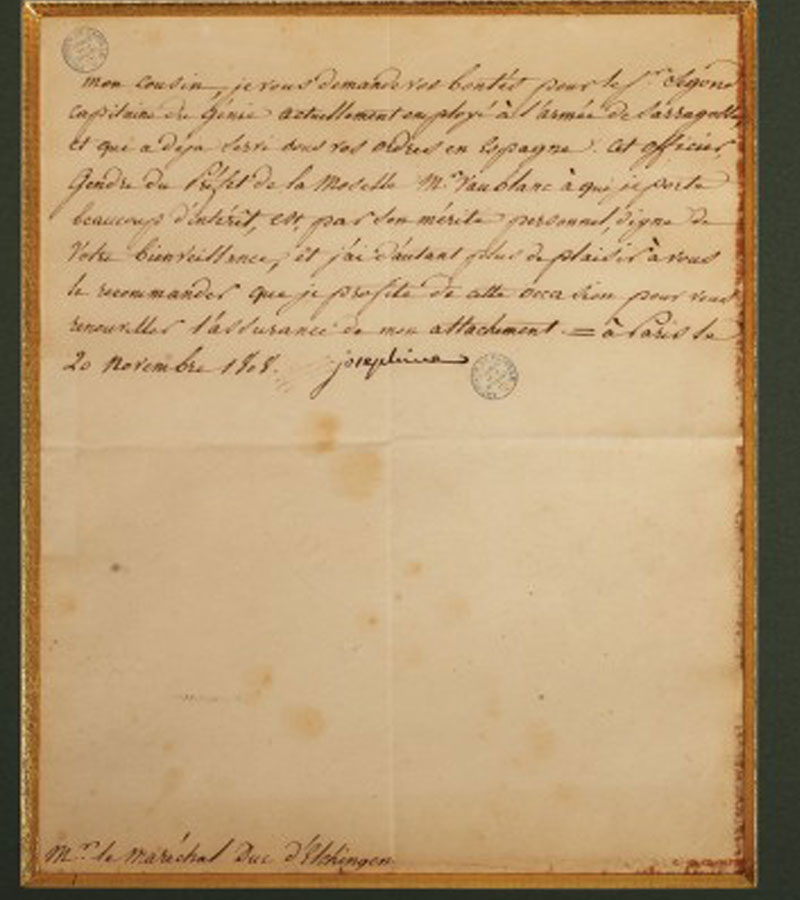 mon cousin, je vous demande vos bontés pour le Sr.
capitaine du génie actuellement employé à l'armée de Sarragosse,
et qui a déja servi sous vos ordres en Espagne. Cet officier,
Gendre du Préfet de la Moselle Mr. Vaublanc à qui je porte
beaucoup d'intérêt, est, par son mérite personnel, digne de
Votre bienveillance, et j'ai d'autant plus de plaisir à vous
le recommander que je profite de cette occasion pour vous
renouveller l'assurance de mon attachement. = à Paris le
20 novembre 1808.
josephine
Mr. le maréchal Duc d'Elchingen